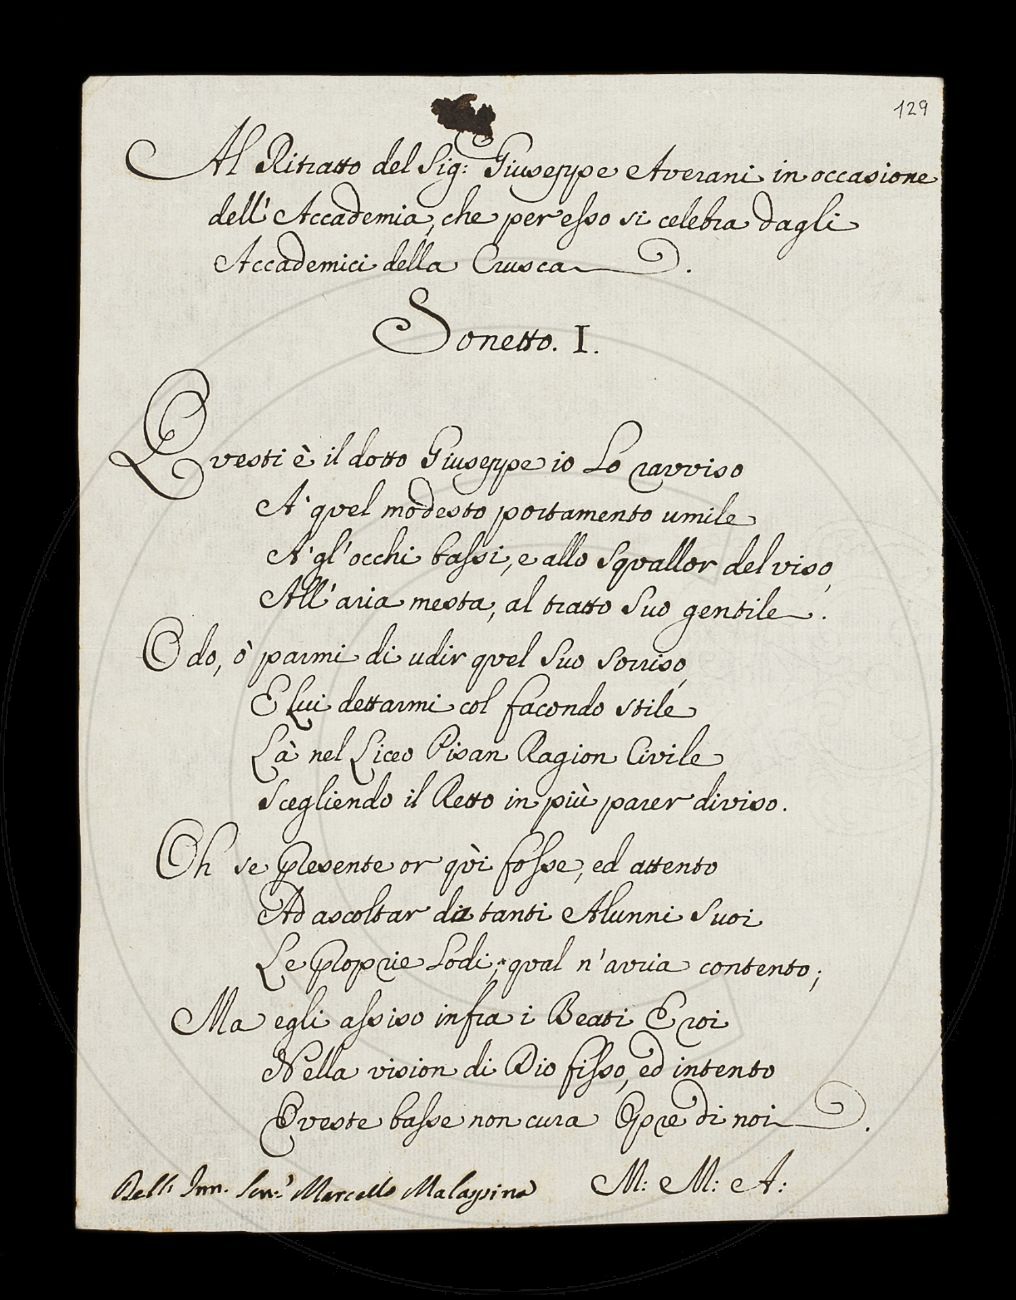 129
Al Ritratto del Sig: Giuseppe Averani in occasione
dell' Accademia, che per esso si celebra dagli
Accademici della Crusca.
Sonetto. I.
Questi è il dotto Giuseppe io Lo ravviso
A' quel modesto portamento umile
A' gl' occhi bassi, e allo Squallor del viso,
All' aria mesta, al tratto Suo gentile.
Odo, ò parmi di udir quel Suo Sorriso,
E Lui dettarmi col facondo stile
Là nel Liceo Pisan Ragion Civile
Scegliendo il Retto in più parer diviso.
Oh se Presente or quì fosse, ed attento
Ad ascoltar da tanti Alunni Suoi
Le Proprie Lodi, qual n' avria contento;
Ma egli assiso infra i Beati Eroi
Nella vision di Dio fisso, ed intento
Queste basse non cura Opre di noi.
Dell' Sen.r Marcello Malaspina M: M: A: